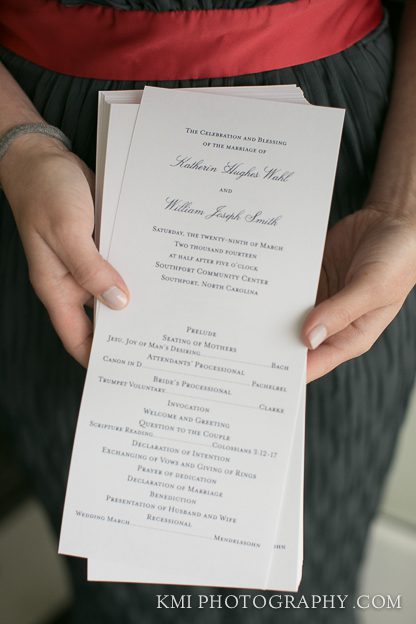 The Celebration and Blessing
of the marriage of
Katherin Hughes Wahl
and
William Joseph Smith
Saturday, the twenty-ninth of March
Two thousand fourteen
at half after five o'clock
Southport Community Center
Southport, North Carolina
Prelude
Seating of Mothers
Jesu, Joy of Man's Desiring Bach
Attendants' Processional
Canon in D Pachelbel
Bride's Processional
Trumpet Voluntary Clarke
Invocation
Welcome and Greeting
Question to the Couple
Scripture Reading Colossians 3:12-17
Declaration of Intention
Exchanging of Vows and Giving of Rings
Prayer of dedication
Declaration of Marriage
Benediction
Presentation of Husband and Wife
Recessional
Wedding March Mendelssohn
KMI PHOTOGRAPHY.COM